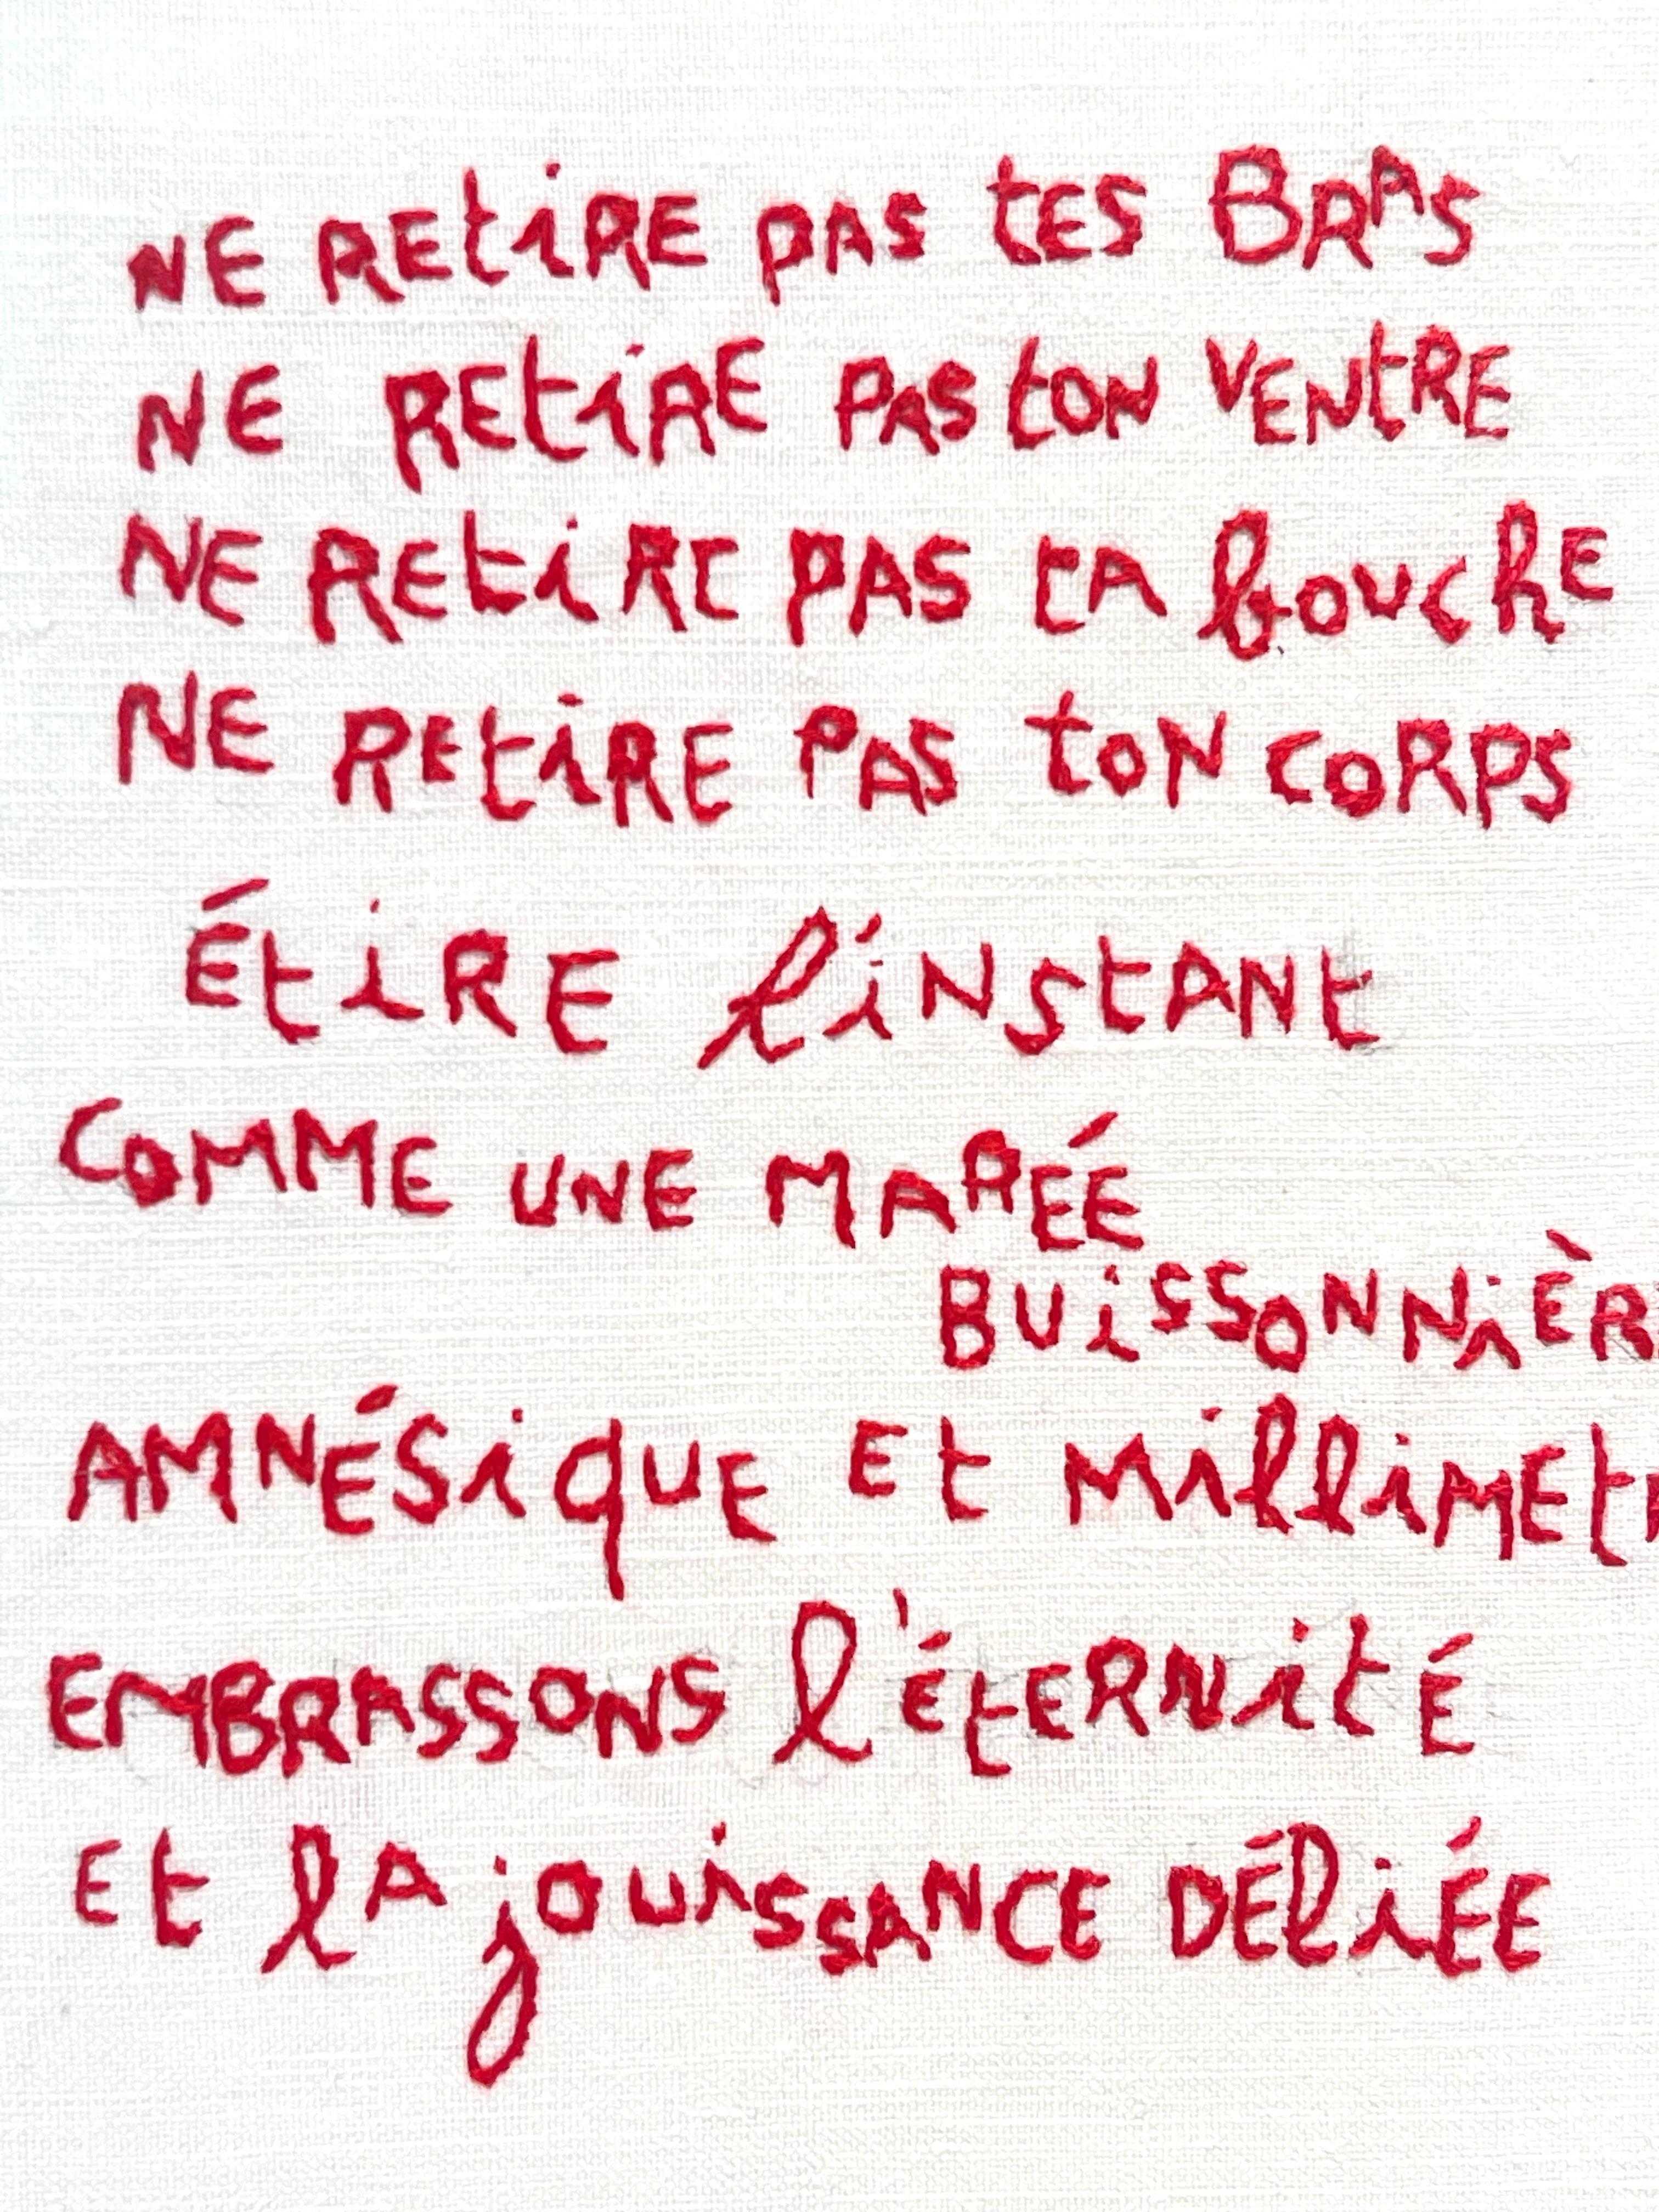 NE REtiRE PAS tES BRAS
NE REtiRE PAS tON VENtRE
NE REtiRE PAS tA bouchE
NE REtiRE PAS toN CORPS
ÉtiRE l'iNStANt
COMME UNE MARÉE
BUiSSONNiÈR
AMNÉSiqUE Et MilliMEtR
EMBRASSONS l'ÉtERNitÉ
Et lA jOUiSSANCE DÉliÉE